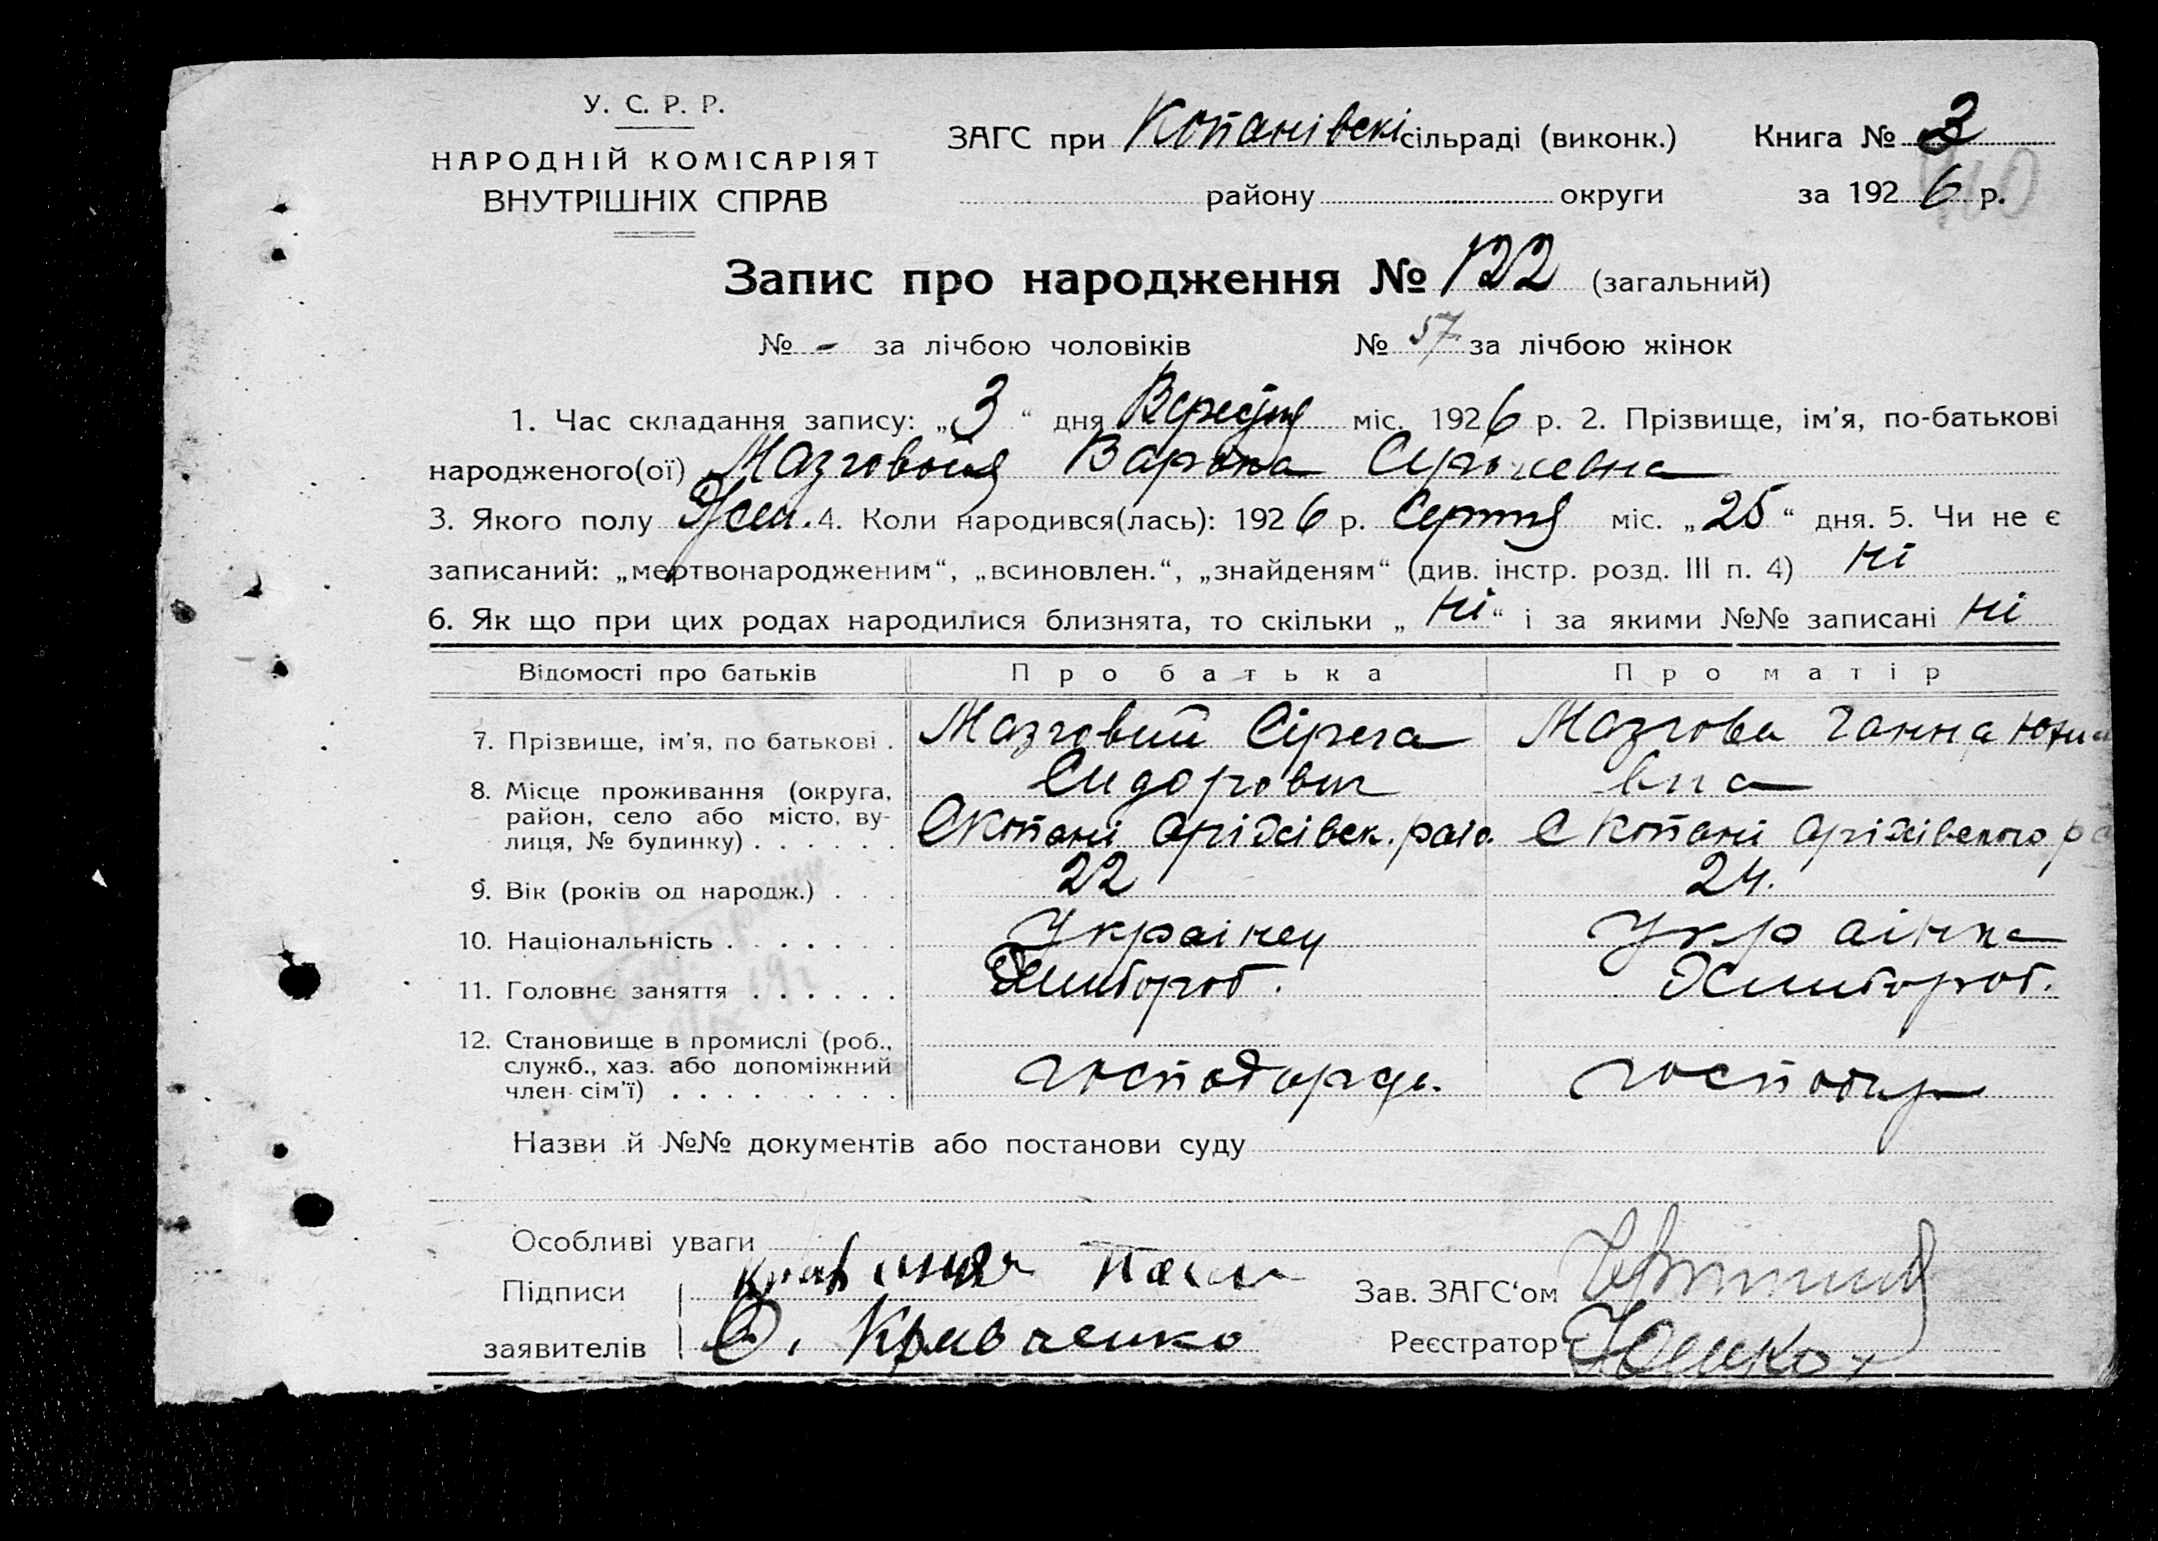 У. С. Р. Р.
НАРОДНІЙ КОМІСАРІЯТ
ВНУТРІШНІХ СПРАВ
ЗАГС при Копанівскі сільраді (виконк.) Книга № 3
району округи за 1926 р.
Запис про народження № 122 (загальний)
№ - за лічбою чоловіків № 57 за лічбою жінок
1. Час складання запису: „3“ дня Вересня міс. 1926 р. 2. Прізвище, ім'я, по-батькові
народженого(ої) Мазговоия Варвка
3. Якого полу Жен. 4. Коли народився(лась): 1926 р. Серпня міс. „25“ дня. 5. Чи не є
записаний: „мертвонародженим“, „всиновлен.“, „знайденям“ (див. інстр. розд. III п. 4) Ні
6. Як що при цих родах народилися близнята, то скільки „Ні“ і за якими №№ записані Ні
Відомості про батьків Про батька Про матір
7. Прізвище, ім'я, по батькові . Мазговий Сірега Сидорович Мазгова Ганна
8. Місце проживання (округа, район, село або місто, вулиця, № будинку) . . . . . . С Копані Оріхівск. райо. С Копані Оріхівского р
9. Вік (років од народж.) . . . 22 24.
10. Національність . . . . . . . Украінец Украінка
11. Головне заняття . . . . . . Хлибороб. Хлибороб.
12. Становище в промислі (роб., служб., хаз. або допоміжний член сім'ї) . . . . . . . . .
Назви й №№ документів або постанови суду
Особливі уваги
Підписи
заявителів О. Кравченко
Зав. ЗАГС'ом
Реєстратор